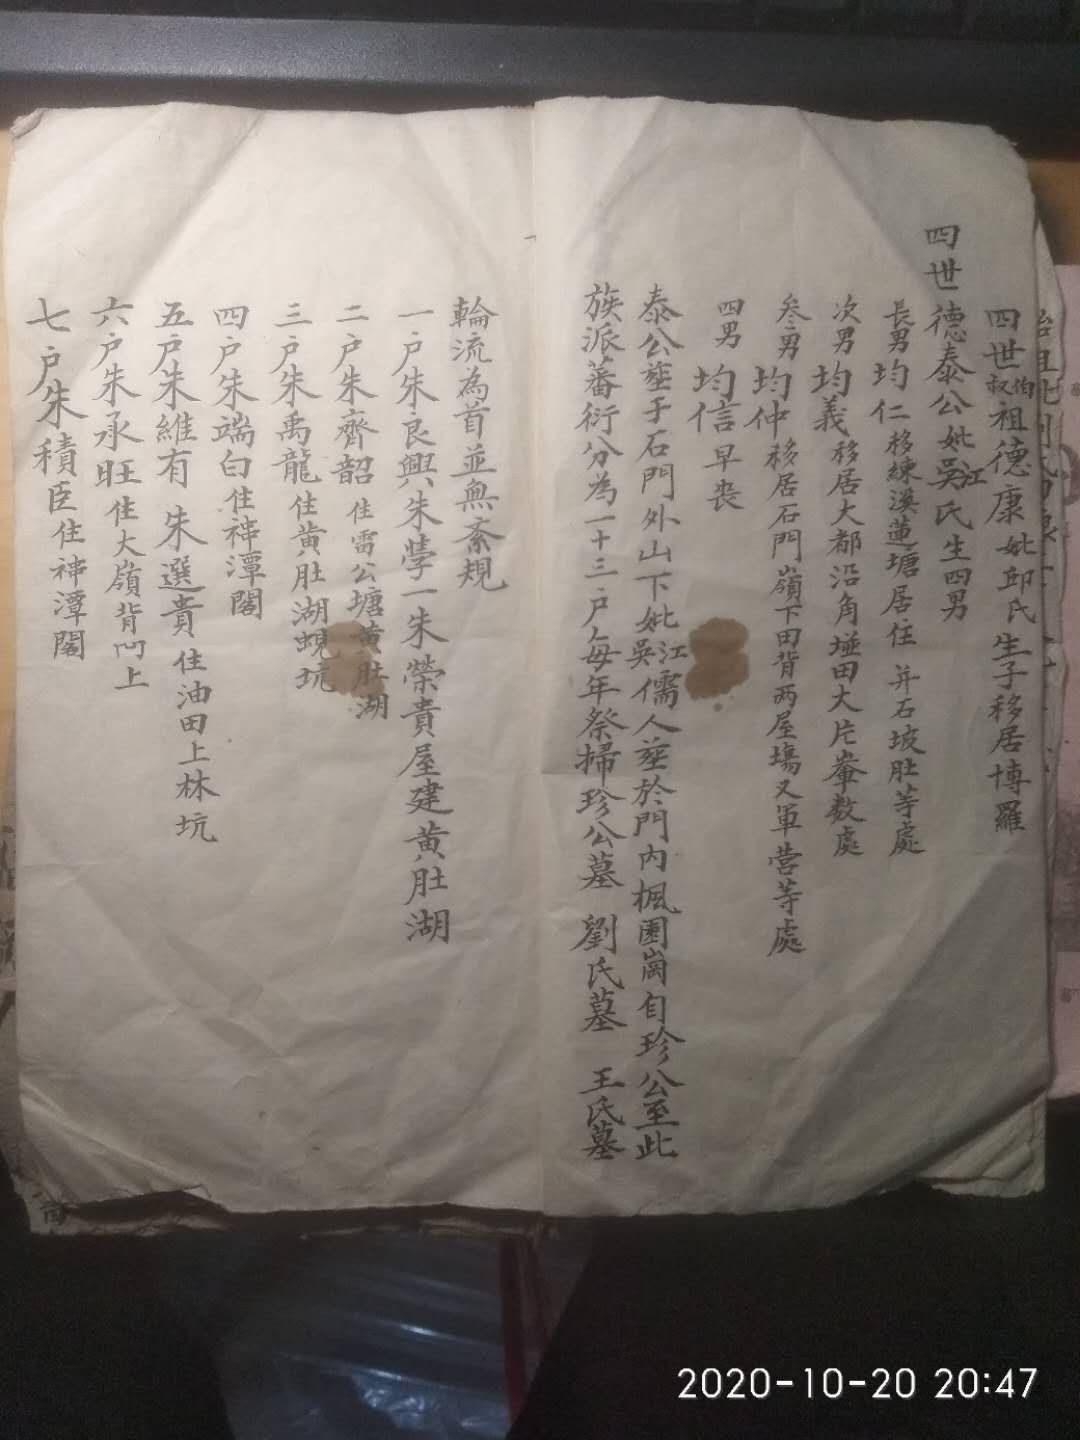 四世伯叔祖德康妣邱氏生子移居博羅
四世德泰公妣江吳氏生四男
長男均仁移練溪蓮塘居住并石坡肚等處
次男均義移居大都沿角墟田大片輋数處
叁男均仲移居石門嶺下田背两屋塲又軍营等處
四男均信早丧
泰公葬于石門外山下妣江吳儒人葬於門内楓園崗自珍公至此
族派蕃衍分為一十三户每年祭掃珍公墓 劉氏墓 王氏墓
輪流為首並無紊規
一户朱良興朱學一朱榮貴屋建黄肚湖
二户朱齊韶住雷公塘黄肚湖
三户朱禹龍住黄肚湖蜆坑
四户朱端白住神潭閣
五户朱維有 朱選貴住油田上林坑
六户朱承旺住大嶺背凹上
七户朱積臣住神潭閣
2020-10-20 20:47